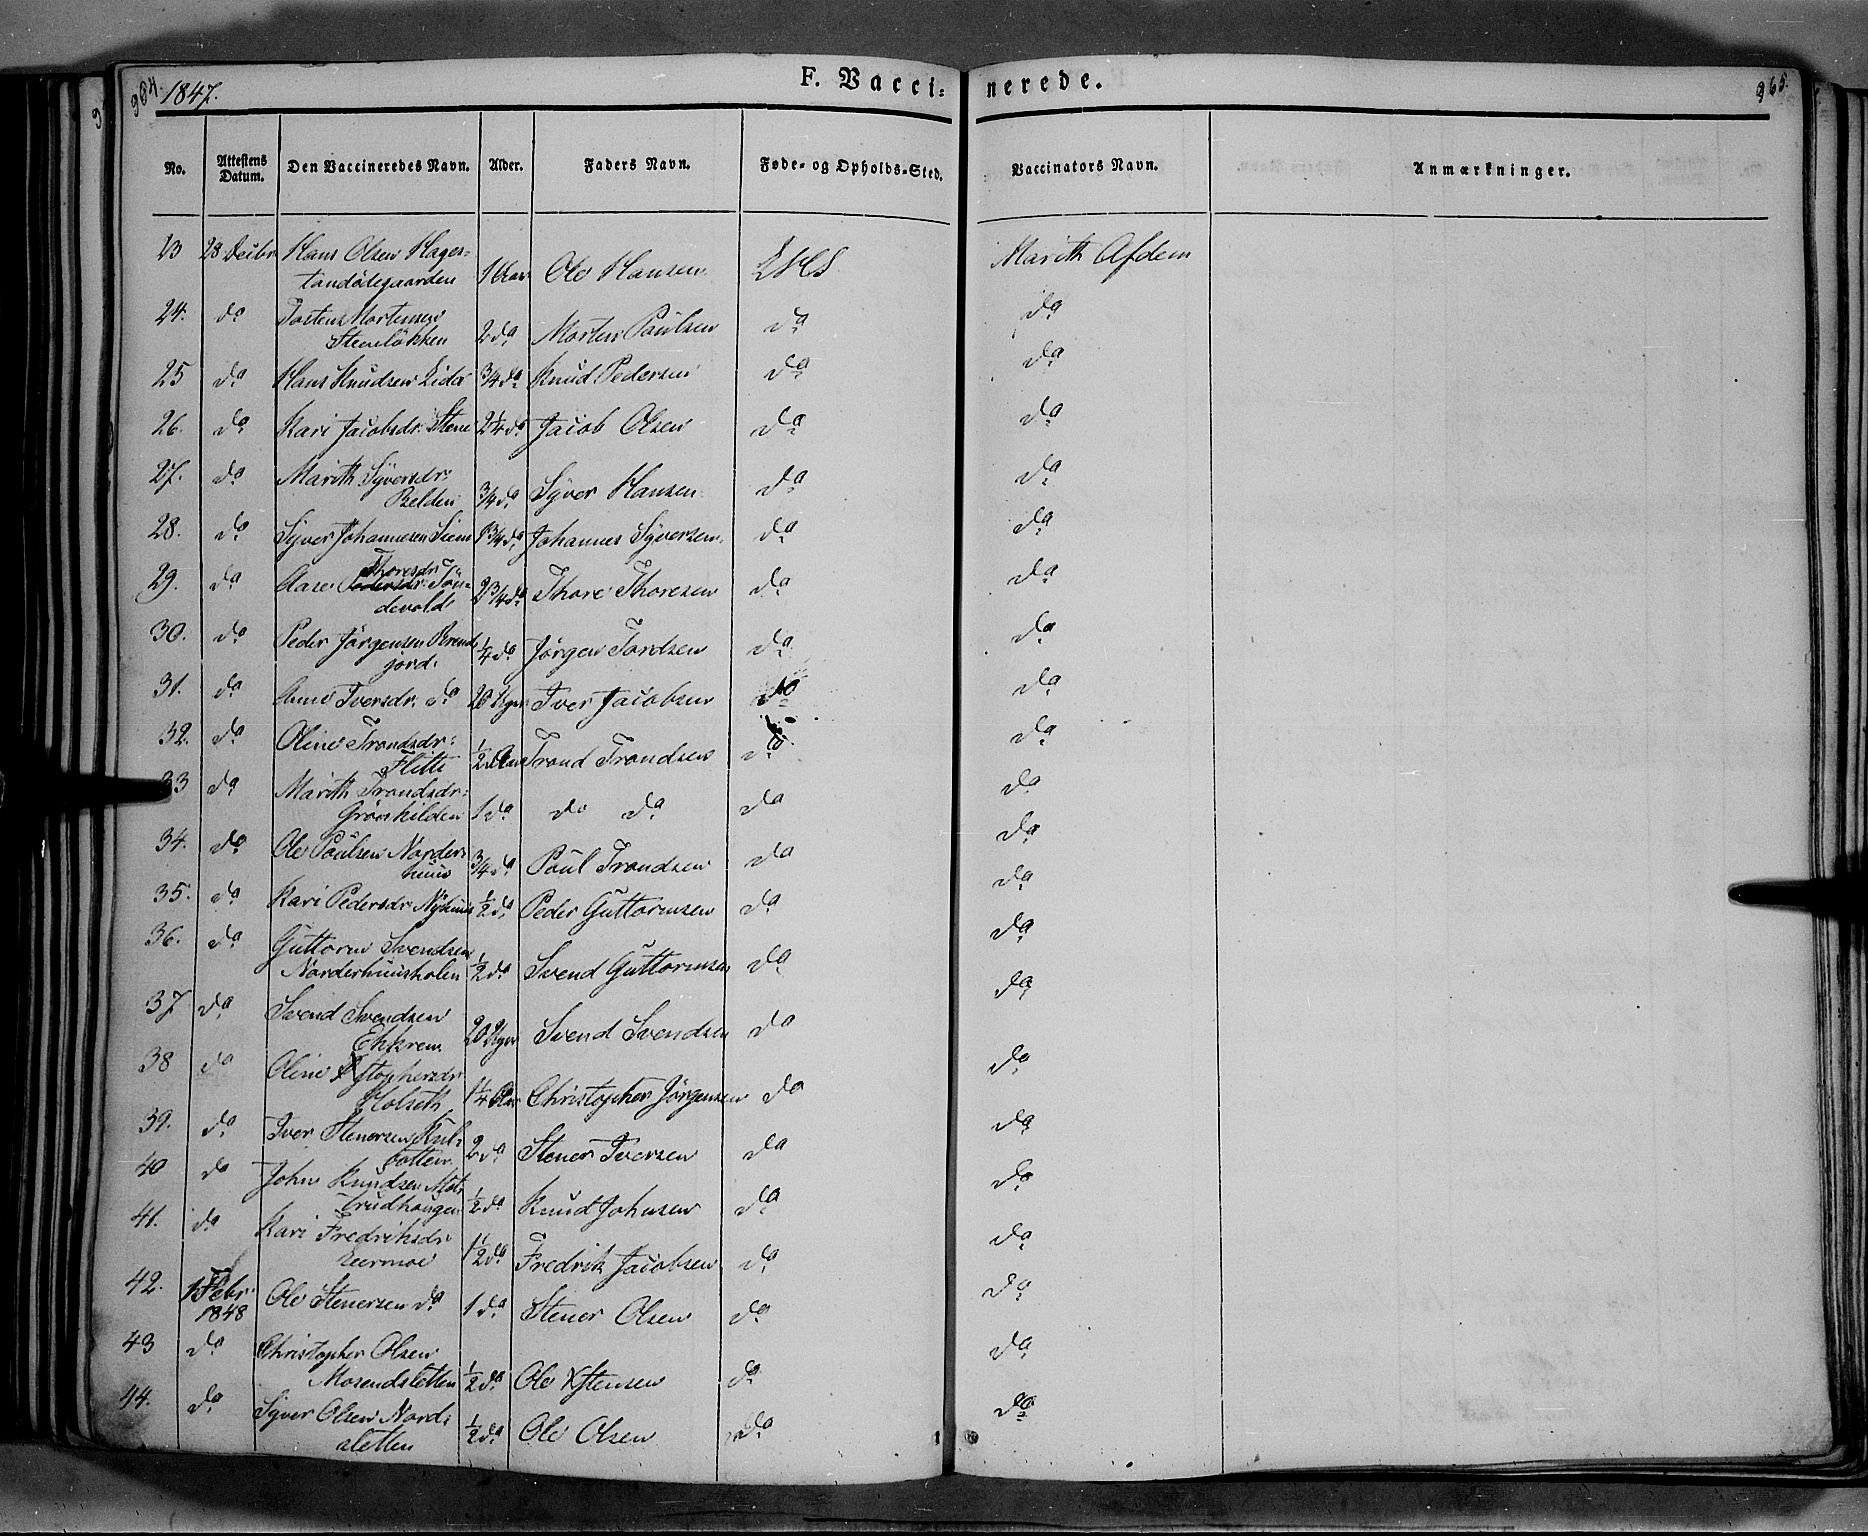 364. 1847. F. Vacci= nerede. 365.
No. Attestens Datum. Den Vaccineredes Navn. Alder. Faders Navn. Føde- og Opholds-Sted. Vaccinators Navn. Anmærkninger.
23 28 Decbr Hans Olsen Hages=
tandølegaarden 1 Aar Ole Hansen Marith Afdem
24. do Tosten Mortensen
Steneløkken 2 do Morten Paulsen do do
25 do Hans Knudsen Lida 3/4 do Knud Pedersen do do
26. do Kari Jacobsdr: Stene 2 1/4 do Jacob Olsen do do
27. do Marith Syversdr:
Belden 3/4 do Syver Hansen do do
28. do Syver Johannesen Siem 1 3/4 do Johannes Syversen do do
Thoresdr
29. do Aase Pedersdr: Tøn=
devold 2 3/4 do Thore Thoresen do do
30. do Peder Jørgensen Brend=
jord 1/4 do Jørgen Tordsen do do
31. do Anne Iversdr. do 20 Uger Iver Jacobsen do do
32. do Oline Trondsdr:
Flitti 1/2 Aar Trond Trondsen do do
33 do Marith Trondsdr:
Grønkilden 1 do do do do do
34. do Ole Paulsen Norder=
huus 3/4 do Paul Trondsen do do
35. do Kari Pedersdr Nyhuus 1/2 do Peder Guttormsen do do
36. do Guttorm Svendsen
Norderhuusholen 1/2 do Svend Guttormsen do do
37. do Svend Svendsen
Ekkren 20 Uger Svend Svendsen do do
38 do Oline Xstophersdr
Holseth 1 1/4 Aar Christopher Jørgensen do do
39. do Iver Stenersen Kul=
botten 2 do Stener Iversen do do
40 do John Knudsen
Trudhaugen 1/2 do Knud Johnsen do do
41. do Kari Fredriksdr
1 1/2 do Fredrik Jacobsen do do
42. 1 Febr:
1848 Ole Stenersen do 1 do Stener Olsen do do
43 do Christopher Olsen
Mosendsletten 1/2 do Ole Xstensen do do
44. do Syver Olsen Nord=
sletten 1/2 do Ole Olsen do do